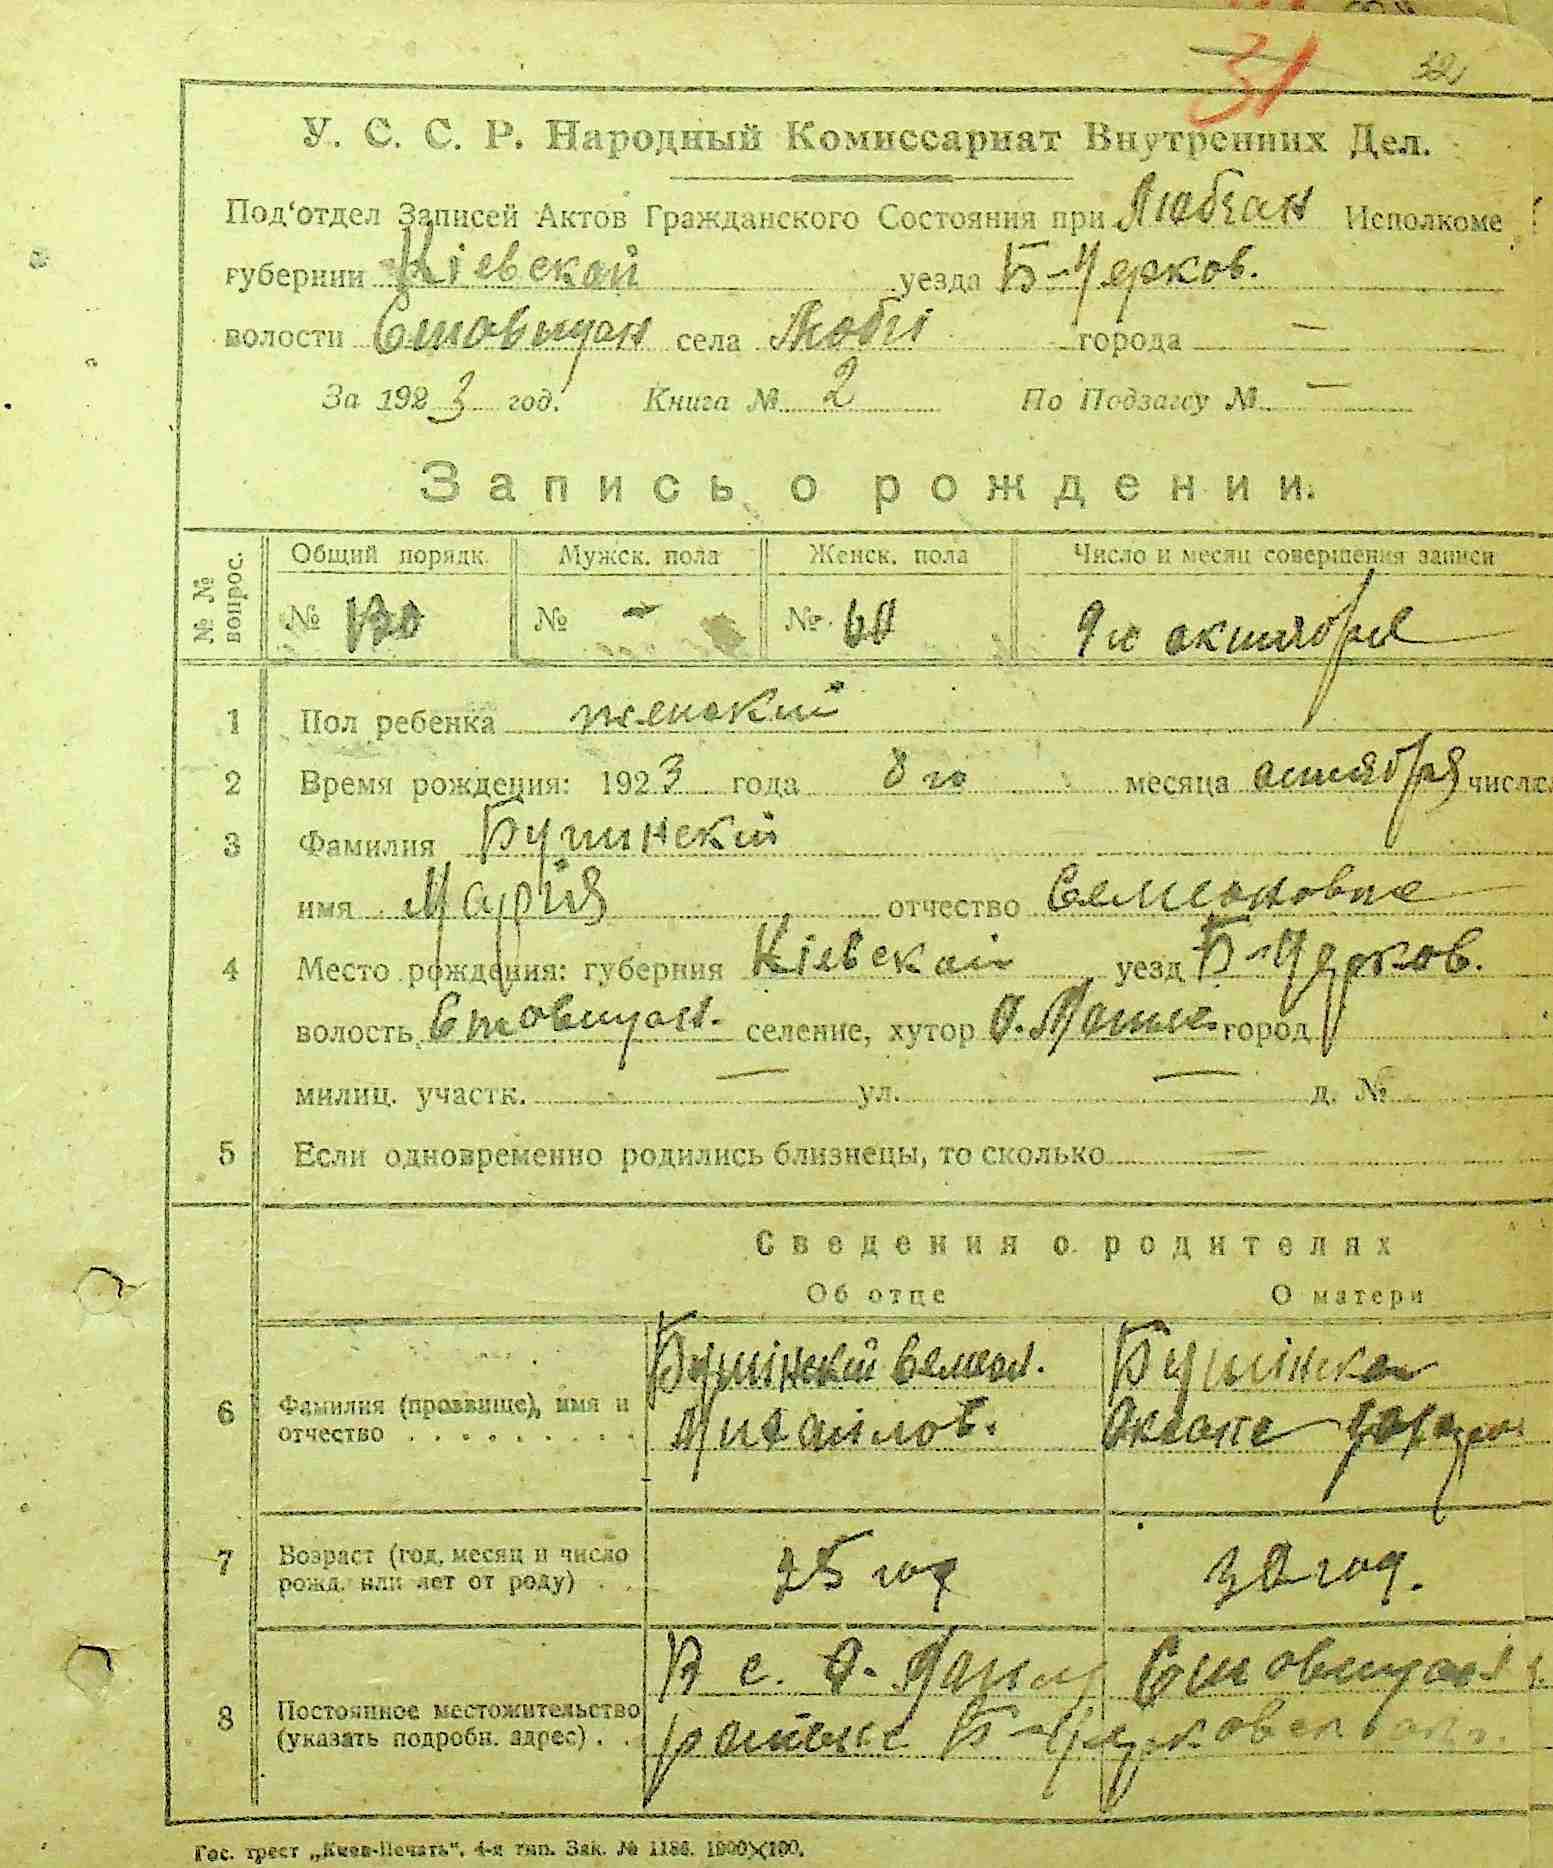 31
32
У. С. С. Р. Народный Комиссариат Внутренних Дел.
Под'отдел Записей Актов Гражданского Состояния при Любчан Исполкоме
губернии Кіевской уезда Б-Церков.
волости Ставищан села Любчі города —
За 1923 год. Книга № 2 По Подзагсу № —
Запись о рождении.
№ № вопрос. Общий порядк. Мужск. пола Женск. пола Число и месяц совершения записи
№ № - № 60 9го октября
1 Пол ребенка женский
2 Время рождения: 1923 года 8го месяца октября числа
3 Фамилия
имя Марія отчество Семеновна
4 Место рождения: губерния Кіевской уезд Б-Церков.
волость Ставищан. селение, хутор город
милиц. участк. — ул. — д. №
5 Если одновременно родились близнецы, то сколько —
Сведения о родителях
Об отце О матери
6 Фамилия (прозвище), имя и отчество . . . . . . . . .
Семеон.
Михайлов.
7 Возраст (год, месяц и число рожд. или лет от роду) . .
год 30 год.
8 Постоянное местожительство (указать подробн. адрес) . .
В с. Ставищан
района Б-Церковского
Гос. трест „Киев-Печать“. 4-я тип. Зак. № 1186. 1000×100.